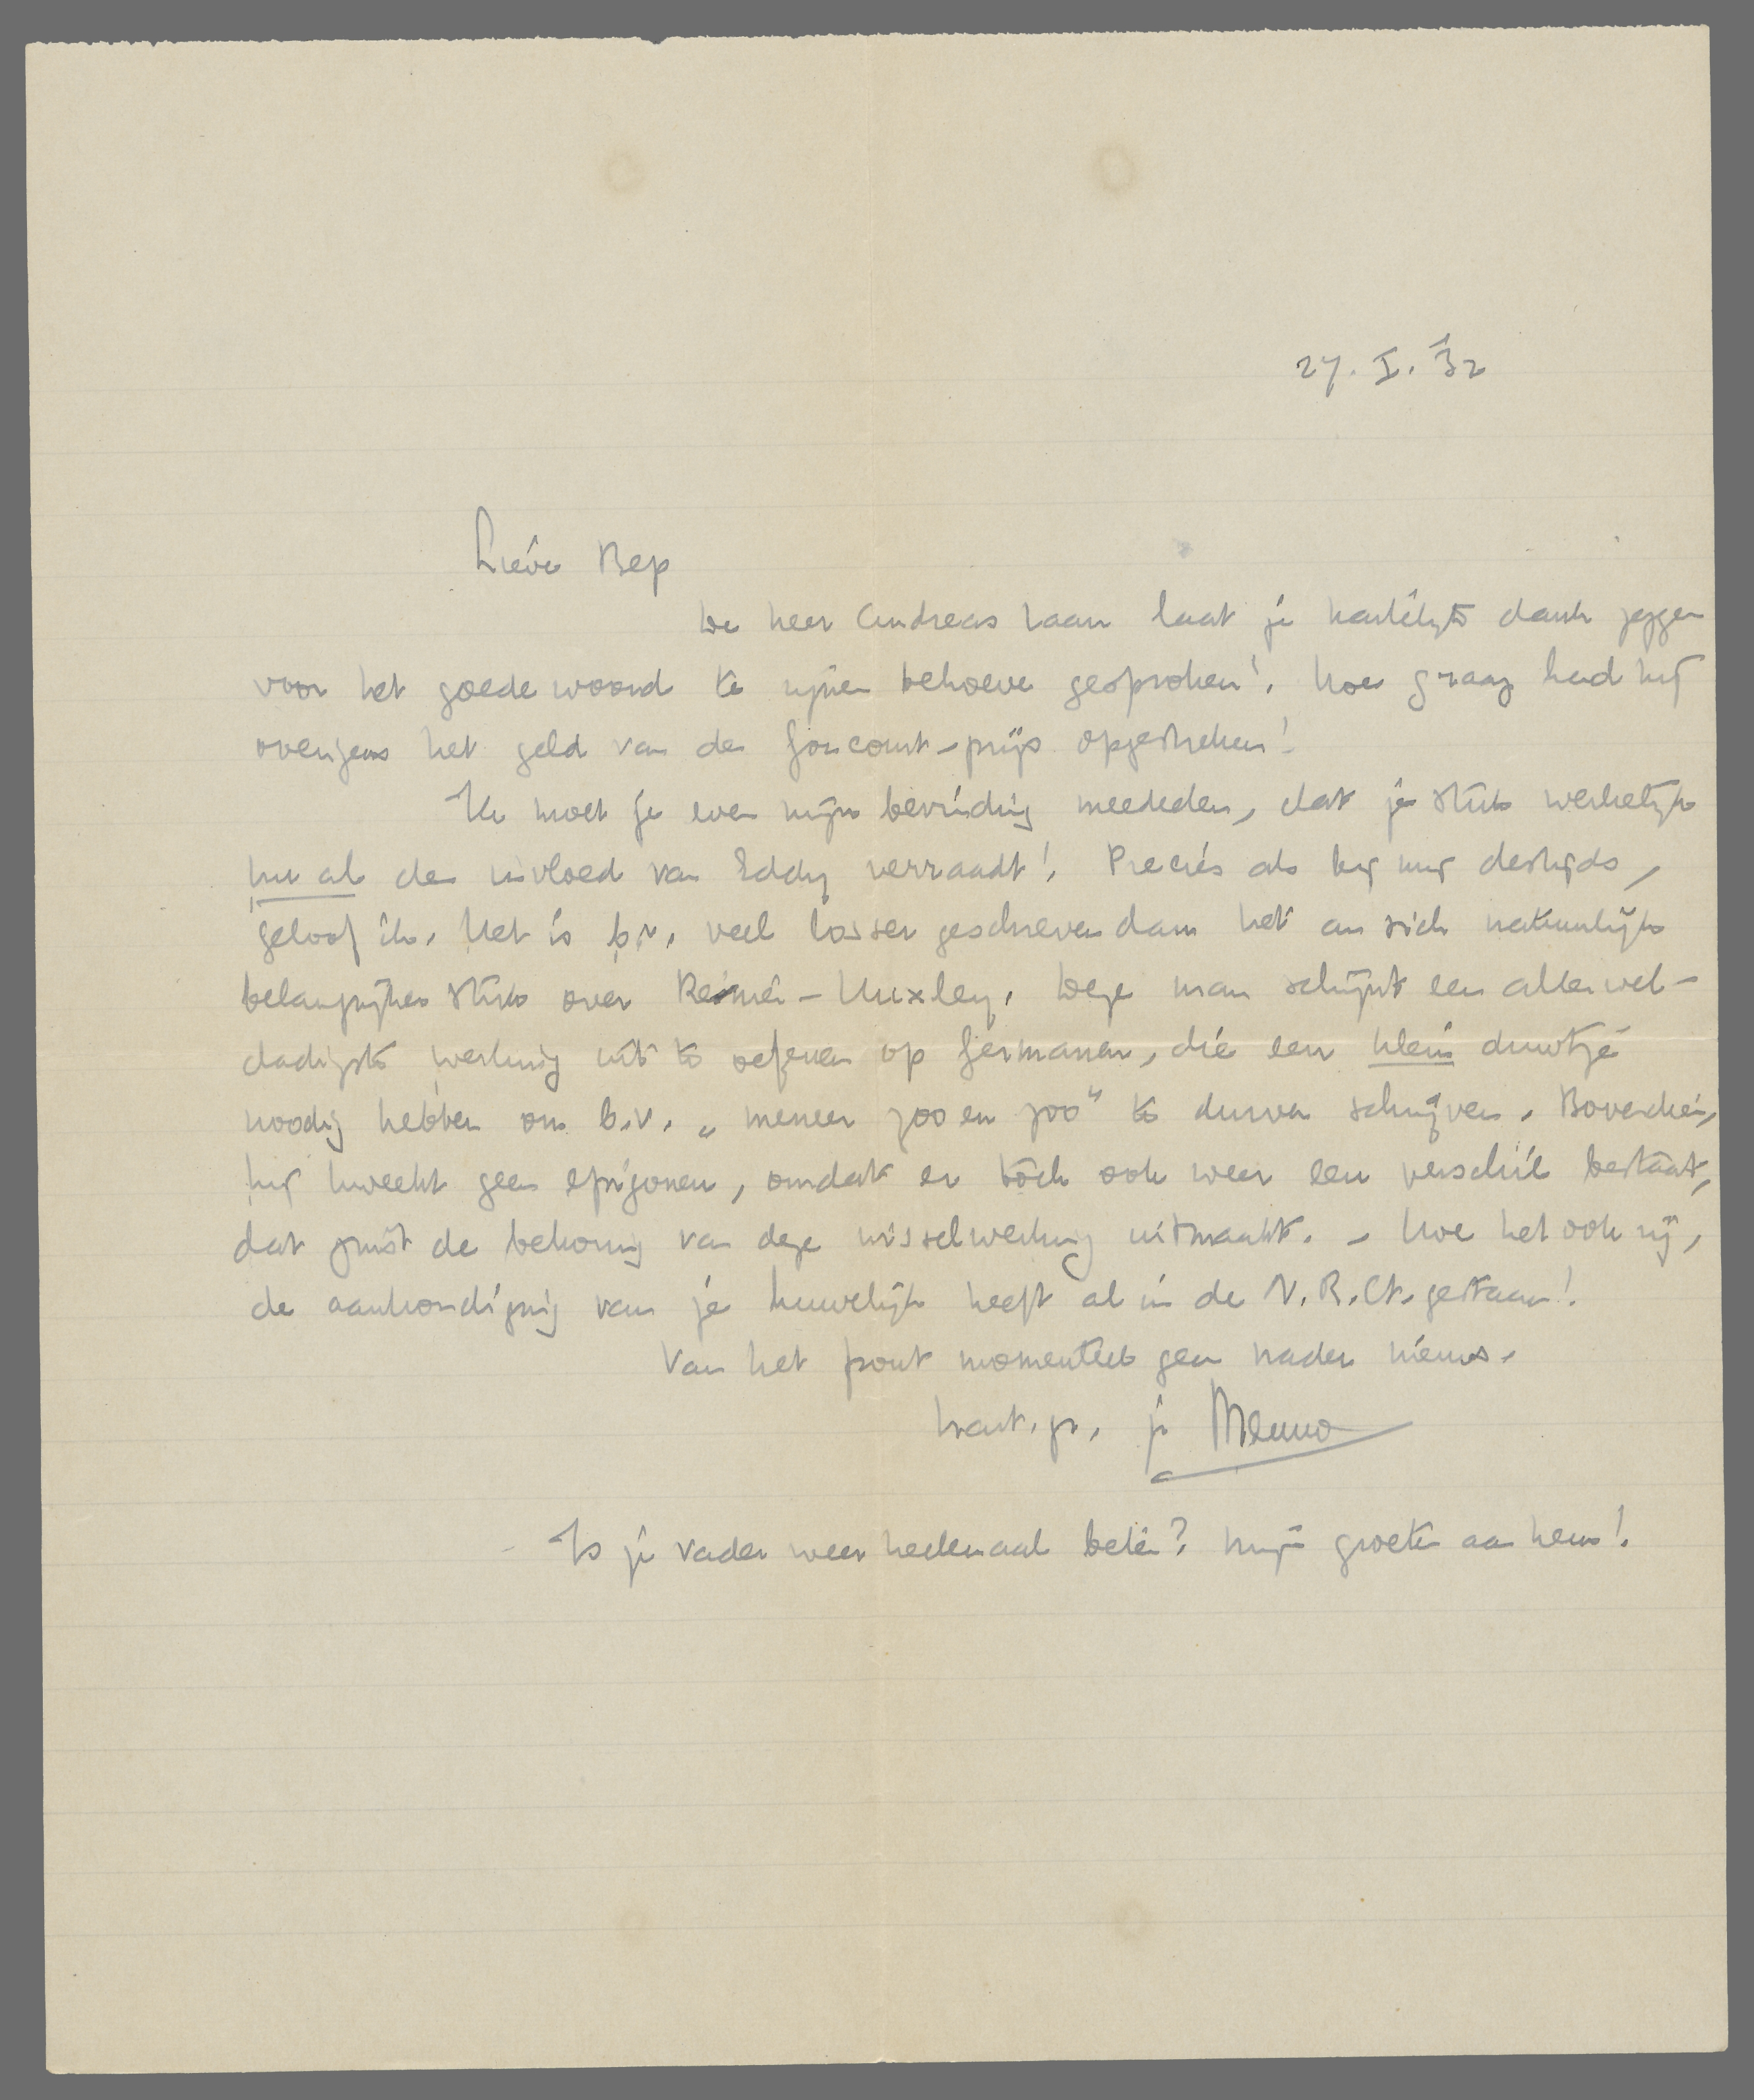 27. I. '32
Lieve Bep
De heer Andreas Laan laat je hartelijk dank zeggen
voor het goede woord te zijnen behoeve gesproken! Hoe graag had hij
overigens het geld van de Goncourt-prijs opgestreken!
Ik moet je even mijn bevinding mededeelen, dat je stuk werkelijk
nu al den invloed van Eddy verraadt! Precies als bij mij destijds,
geloof ik. Het is b.v. veel losser geschreven dan het an sich natuurlijk
belangrijker stuk over Keimé-Huxley. Deze man schijnt een allerwel-
dadigste werking uit te oefenen op Germanen, die een klein duwtje
noodig hebben om b.v. „meneer zoo en zoo" te durven schrijven. Bovendien,
hij kweekt geen epigonen, omdat er tòch ook weer een verschil bestaat,
dat juist de bekoring van deze wisselwerking uitmaakt. – Hoe het ook zij,
de aankondiging van je huwelijk heeft al in de N.R.Ct. gestaan!
Van het front momenteel geen nader nieuws.
hart. gr. je Menno
Is je vader weer heelemaal beter? Mijn groeten aan hem!